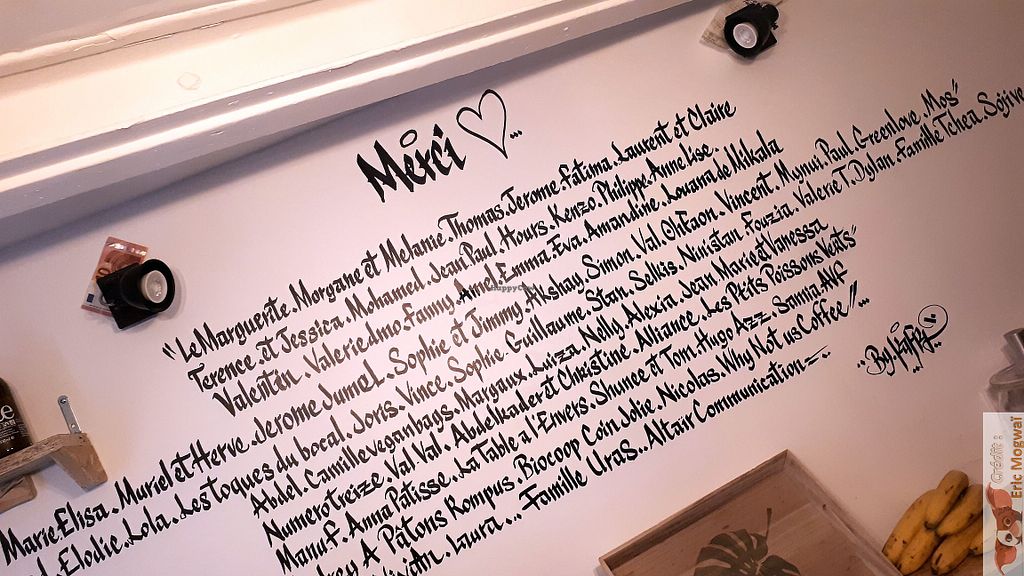 Merci ...
"Le Marguerite. Morgane et Melanie. Thomas. Jerome. Fatima. Laurent et Claire
Terence et Jessica. Mohamed. Jean Paul. Hours. Kenzo. Philippe. Annelise.
Valentin. Valeriedmo. Fanny. Armel. Emma. Eva. Amandine. Louana de Nikala
Marie Elisa. Muriel et Herve. Jerome Jumel. Sophie et Jimmy. Akshay. Simon. Val. Vincent. Mynui. Paul. Greenlove. Mos"
Elodie. Lola. Les toques du bocal. Joris. Vince. Sophie. Guillaume. Stan. Selkis. Nuristan. Fouzia. Valerie T. Dylan. Famille Tchea. Sojive
Abdel. Camilleveganbags. Margaux. Luiza. Nelly. Alexia. Jean Marie et Vanessa
Numerotreize. Val Val. Abdelkader et Christine. Alliance. Les Ptits Poissons Verts"
Manuf. Anna Patisse. La Table a l'Envers. Shunee et Tom. Hugo Azz. Samia. Alf
A Patons Rompus. Biocoop Coin Jolie. Nicolas. Why Not us Coffee!!...
Laura... Famille Uras.. Altair Communication
HappyCow
Crédit :
Eric Mogwaï